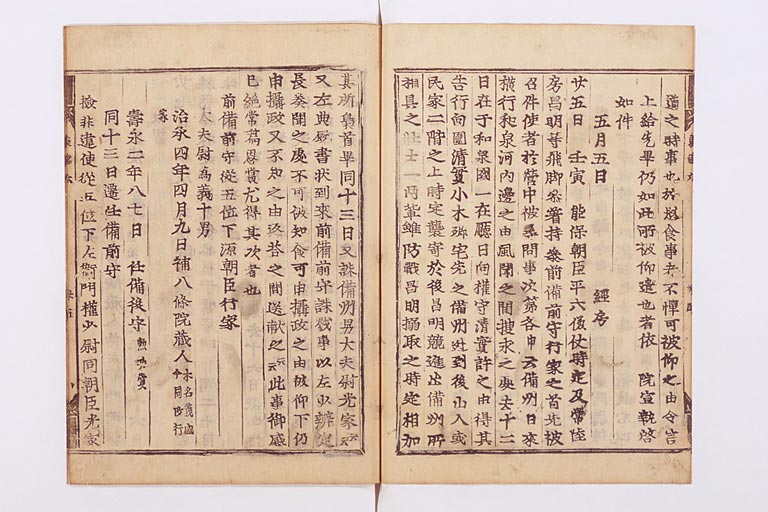 道之時事也於焔食事者不憚可被仰之由令言
上給先畢仍如此所被仰遣也者依　院宣執啓
如件
五月五日　　　　　　　經房
廿五日　壬寅　能保朝臣平六傔仗時定及常陸
房昌明等飛脚參著持參前備前守行家之首先被
召件使者於營中被尋問事次第各申云備州日來
横行和泉河内邊之由風聞之間捜求之處去十二
日在于和泉國一在廳日向權守清實許之由得其
告行向圍清實小木郷宅先之備州姓到後山入或
民家二階之上時定襲寄於後昌明競進出備州所
相具之壯士一兩輩雖防戰昌明搦取之時定相加
其所梟首畢同十三日又誅備州男大夫尉光家云云
又左典厩書状到來前備前守誅戮事以左少辨定
長奏聞之處不可被知食可申攝政之由被仰下仍
申攝政又不知之由返答之間送獻之云云此事御感
已絶常篇恩賞尤得其次者也
前備前守從五位下源朝臣行家
大夫尉爲義十男
治承四年四月九日補八條院藏人本名義盛今日改行
家
壽永二年八七日　任備後守勲功賞
同十三日遷任備前守
檢非違使從五位下左衞門權少尉同朝臣光家